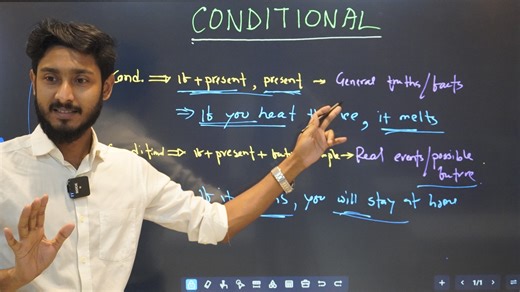 CONDITIONAL
Cond. ⇒ if + present, present → General truths/facts
⇒ If you heat ice, it melts
⇒ if + present + future → Real events/possible
future
If it, you will stay at home
1/1